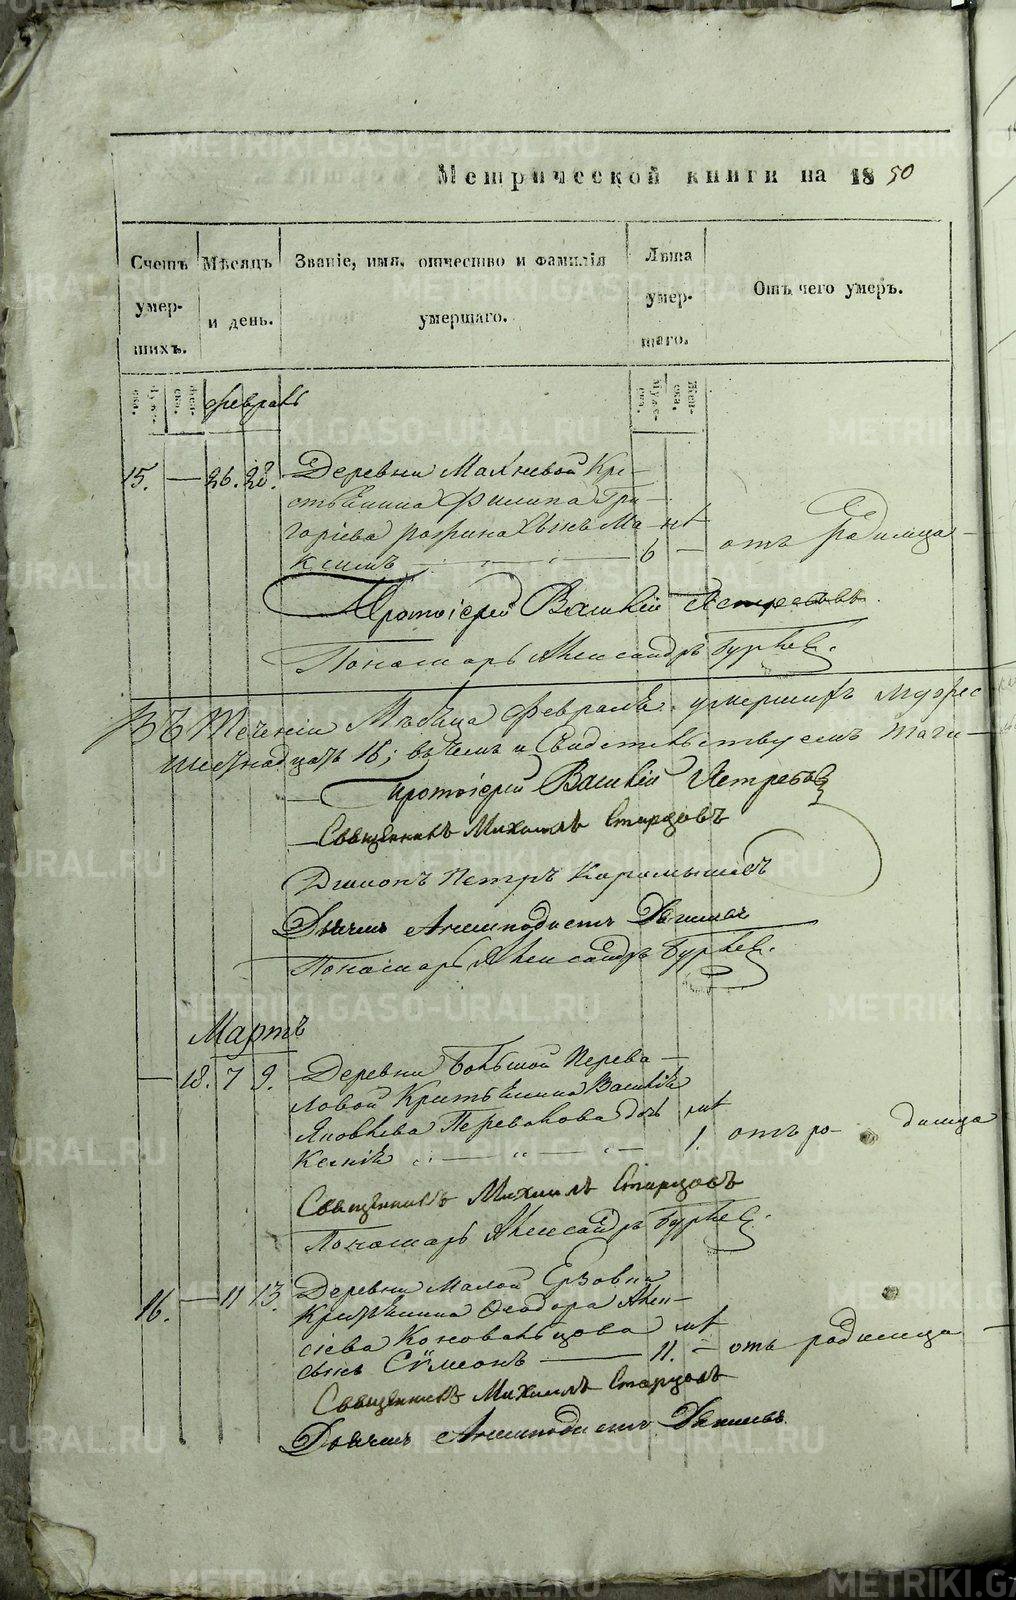 Метрической книги на 1850
Счетъ умер-шихъ.
Мѣсяцъ и день.
Званіе, имя, отчество и фамилія умершаго.
Лѣта умер-шаго.
Отъ чего умеръ.
февраль
15. — 26. 28. Деревни Махневой Кре-
стьянина Филипа Гри-
горіева сынъ Ма-
ксимъ — 6 — отъ родимца —
Протоіерей Василій Ястребовъ.
Пономарь Александръ
Въ теченіи Мѣсяца февраля умершихъ
шестнадцать 16; въ чемъ и Свидѣтельствуемъ
Протоіерей Василій Ястребовъ
Священникъ Михаилъ Старцовъ
Діаконъ Петръ Карамышевъ
Дьячекъ
Пономарь Александръ
Мартъ
— 18. 7 9. Деревни Большой Перева-
ловой Крестьянина Василія
Яковлева Перевалова дочь
Ксенія — 1. отъ ро- димца
Священникъ Михаилъ Старцовъ
Пономарь Александръ
16. — 11 13. Деревни Малой Ерзовки
Крестьянина Ѳеодора Алек-
сіева Коновальцова
сынъ Сѵмеонъ — 11. — отъ родимца —
Священникъ Михаилъ Старцовъ
Дьячекъ
METRIKI.GASO-URAL.RU